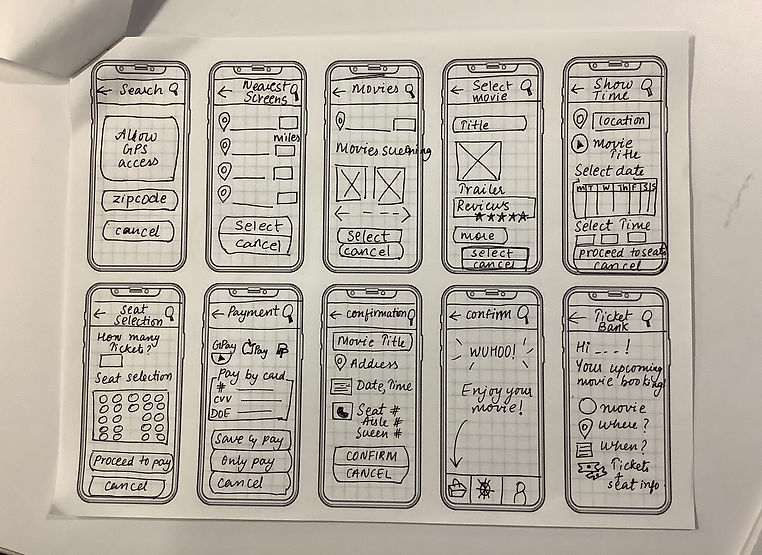 Search
Allow
GPS
access
zipcode
cancel
Nearest
Screens
miles
Select
cancel
Movies
Movies screening
Select
cancel
Select
movie
Title
Trailer
Reviews
more
select
cancel
Show
Time
location
movie
Title
Select date
M T W Th F S S
Select Time
proceed to seats
cancel
Seat
Selection
How many
Ticket?
Seat selection
Proceed to pay
Cancel
Payment
GPay Pay P
Pay by card
#
CVV
DOE
Save & pay
Only pay
Cancel
confirmation
Movie Title
Address
Date, Time
Seat #
Aisle #
Screen #
CONFIRM
CANCEL
confirm
WUHOO!
Enjoy your
movie!
Ticket
Bank
Hi _ _ _ !
Your upcoming
movie booking!
movie
Where?
When?
Tickets
+
seat info